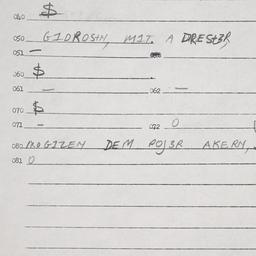 040 $
050 GIDROSTN, MIT. A DRESTBR
051 –
060 $
061 – 062 –
070 $
071 – 072 0
080 MOGIZEN DEM POJBR AKERN,
081 0